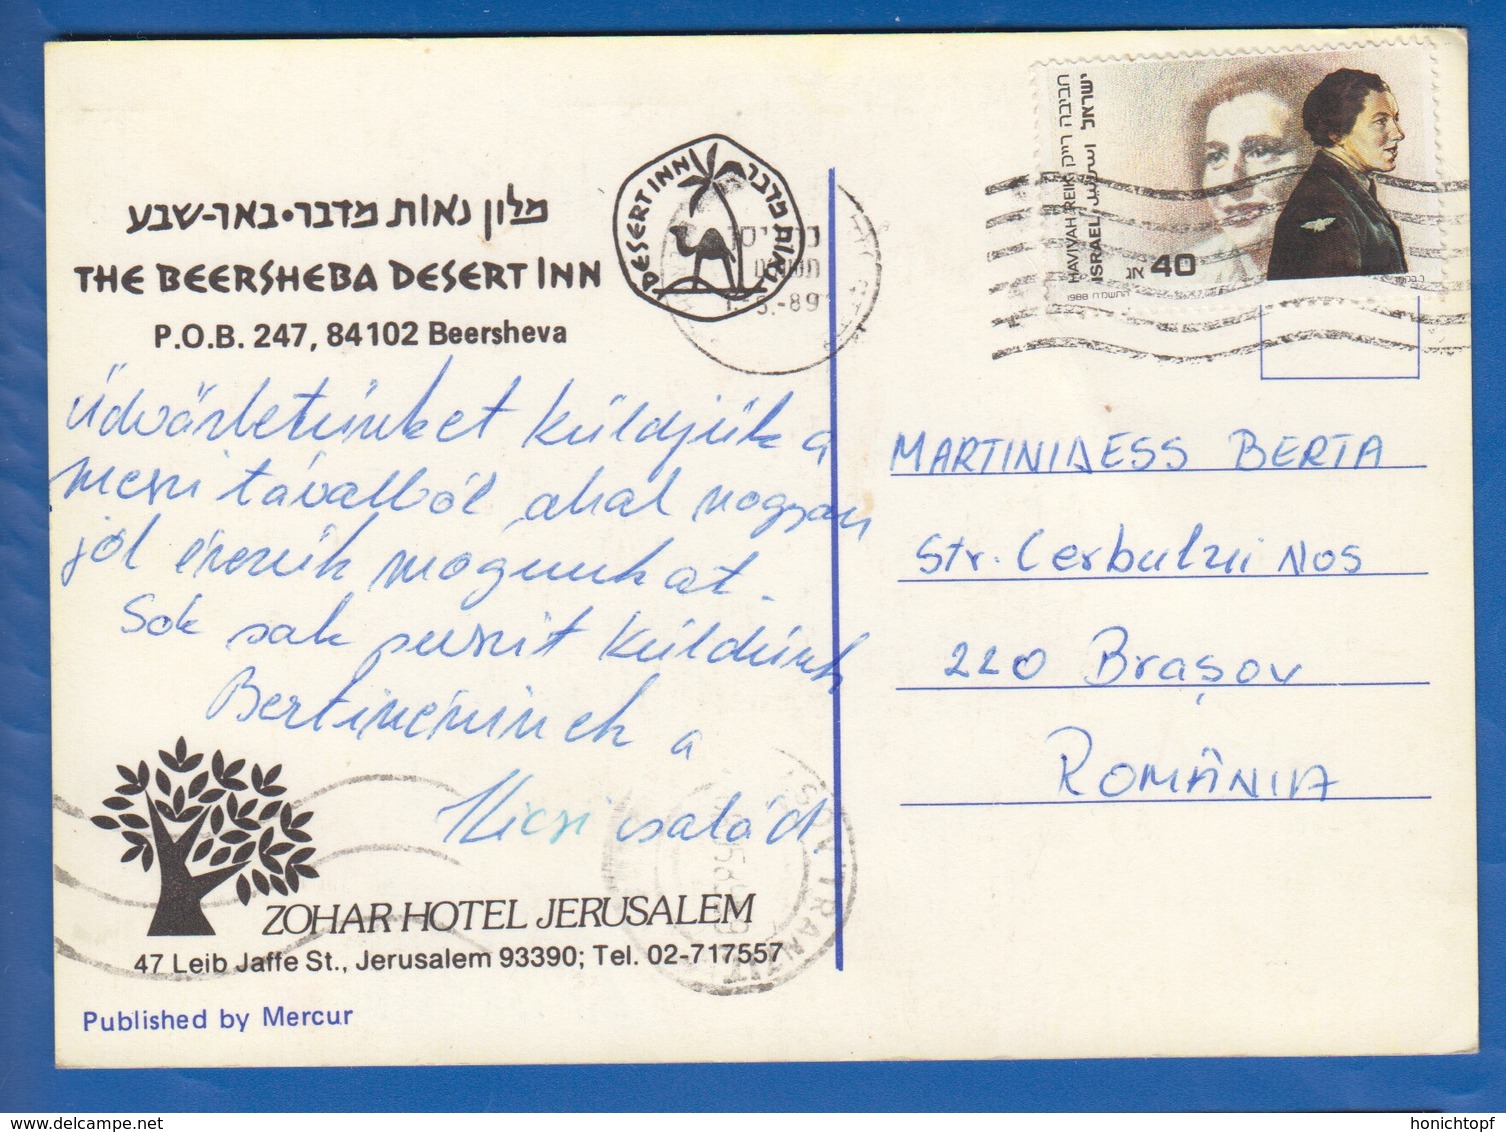 מלון נאות מדבר•באר-שבע
THE BEERSHEBA DESERT INN
P.O.B. 247, 84102 Beersheva
DESERT INN נאות מדבר
-89
חביבה רייק HAVIVAH REIK
ישראל اسرائيل ISRAEL
אג 40
1988 התשמ"ח
Üdvözletünket küldjük a
messzi távolból, ahol nagyon
jól érezzük magunkat.
Sok sok puszit küldünk
Bertinéninek a
Kicsi család.
MARTINIDESS BERTA
Str. Cerbului No5
220 Brașov
ROMÂNIA
BRASOV TRANZIT
ZOHAR HOTEL JERUSALEM
47 Leib Jaffe St., Jerusalem 93390; Tel. 02-717557
Published by Mercur
www.delcampe.net
honichtopf